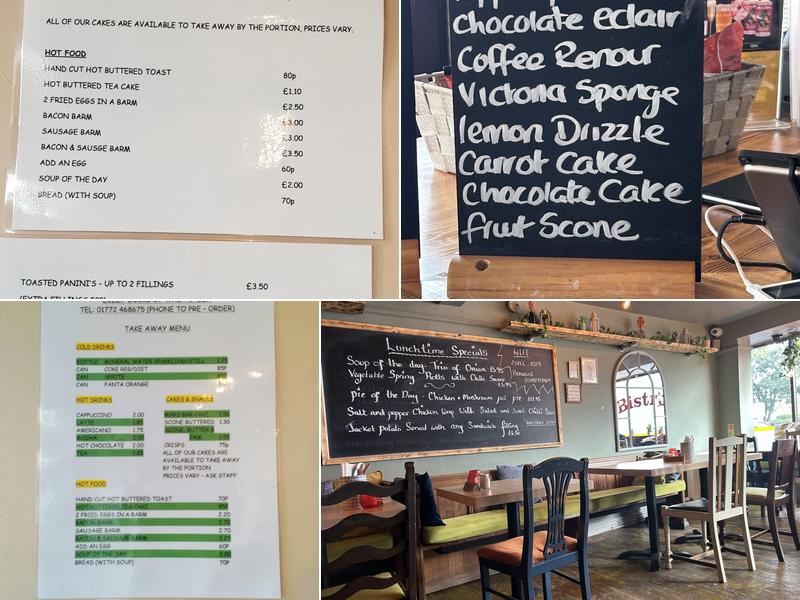 ALL OF OUR CAKES ARE AVAILABLE TO TAKE AWAY BY THE PORTION, PRICES VARY.
HOT FOOD
HAND CUT HOT BUTTERED TOAST 80p
HOT BUTTERED TEA CAKE £1.10
2 FRIED EGGS IN A BARM £2.50
BACON BARM £3.00
SAUSAGE BARM £3.00
BACON & SAUSGE BARM £3.50
ADD AN EGG 60p
SOUP OF THE DAY £2.00
BREAD (WITH SOUP) 70p
TOASTED PANINI'S - UP TO 2 FILLINGS £3.50
Chocolate eclair
Coffee Renour
Victoria Sponge
lemon Drizzle
Carrot Cake
Chocolate Cake
fruit Scone
TEL: 01772 468675 (PHONE TO PRE - ORDER)
TAKE AWAY MENU
COLD DRINKS
BOTTLE MINERAL WATER SPARKLING/STILL 1.25
CAN COKE REG/DIET 85P
CAN SPRITE
CAN FANTA ORANGE
HOT DRINKS
CAPPUCCINO 2.00
LATTE 1.85
AMERICANO 1.75
MOCHA 2.00
HOT CHOCOLATE 2.00
TEA 1.25
CAKES & SNACKS
MARS BAR CAKE 1.50
SCONE BUTTERED 1.30
SCONE, BUTTER &
JAM 1.55
CRISPS 75p
ALL OF OUR CAKES ARE
AVAILABLE TO TAKE AWAY
BY THE PORTION
PRICES VARY - ASK STAFF
HOT FOOD
HAND CUT HOT BUTTERED TOAST 70P
HOT BUTTERED TEA CAKE 95P
2 FRIED EGGS IN A BARM 2.20
BACON BARM 2.70
SAUSAGE BARM 2.70
BACON & SAUSAGE BARM 3.25
ADD AN EGG 60P
SOUP OF THE DAY 2.00
BREAD (WITH SOUP) 70P
Lunchtime Specials
Soup of the day. Trio of Onion £5.95
Vegetable Spring Rolls with Chilli Sauce
Pie of the Day - Chicken & Mushroom pot pie
Salt and pepper Chicken Wing With Salad and Sweet Chilli Sauce
Jacket potato Served with any Sandwich filling
WIFI
Bistr